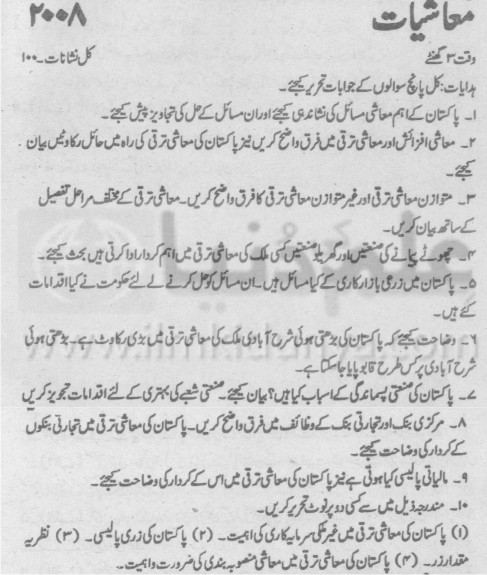 معاشیات ۲۰۰۸
وقت ۳ گھنٹے کل نشانات ۔ ۱۰۰
ہدایات: کل پانچ سوالوں کے جوابات تحریر کیجئے۔
۱۔ پاکستان کے اہم معاشی مسائل کی نشاندہی کیجئے اور ان مسائل کے حل کی تجاویز پیش کیجئے۔
۲۔ معاشی افزائش اور معاشی ترقی میں فرق واضح کریں نیز پاکستان کی معاشی ترقی کی راہ میں حائل رکاوٹیں بیان
کیجئے۔
۳۔ متوازن معاشی ترقی اور غیر متوازن معاشی ترقی کا فرق واضح کریں۔ معاشی ترقی کے مختلف مراحل تفصیل
کے ساتھ بیان کریں۔
۴۔ چھوٹے پیمانے کی صنعتیں اور گھریلو صنعتیں کسی ملک کی معاشی ترقی میں اہم کردار ادا کرتی ہیں بحث کیجئے۔
۵۔ پاکستان میں زرعی بازار کاری کے کیا مسائل ہیں۔ ان مسائل کو حل کرنے لے لئے حکومت نے کیا اقدامات
کئے ہیں۔
۶۔ وضاحت کیجئے کہ پاکستان کی بڑھتی ہوئی شرح آبادی ملک کی معاشی ترقی میں بڑی رکاوٹ ہے۔ بڑھتی ہوئی
شرح آبادی پر کس طرح قابو پایا جا سکتا ہے۔
۷۔ پاکستان کی صنعتی پسماندگی کے اسباب کیا ہیں؟ بیان کیجئے۔ صنعتی شعبے کی بہتری کے لئے اقدامات تجویز کریں
۸۔ مرکزی بنک اور تجارتی بنک کے وظائف میں فرق واضح کریں۔ پاکستان کی معاشی ترقی میں تجارتی بنکوں
کے کردار کی وضاحت کیجئے۔
۹۔ مالیاتی پالیسی کیا ہوتی ہے نیز پاکستان کی معاشی ترقی میں اس کے کردار کی وضاحت کیجئے۔
۱۰۔ مندرجہ ذیل میں سے کسی دو پر نوٹ تحریر کریں۔
(۱) پاکستان کی معاشی ترقی میں غیر ملکی سرمایہ کاری کی اہمیت۔ (۲) پاکستان کی زری پالیسی۔ (۳) نظریہ
مقدار زر۔ (۴) پاکستان کی معاشی ترقی میں معاشی منصوبہ بندی کی ضرورت و اہمیت۔
علم دنیا